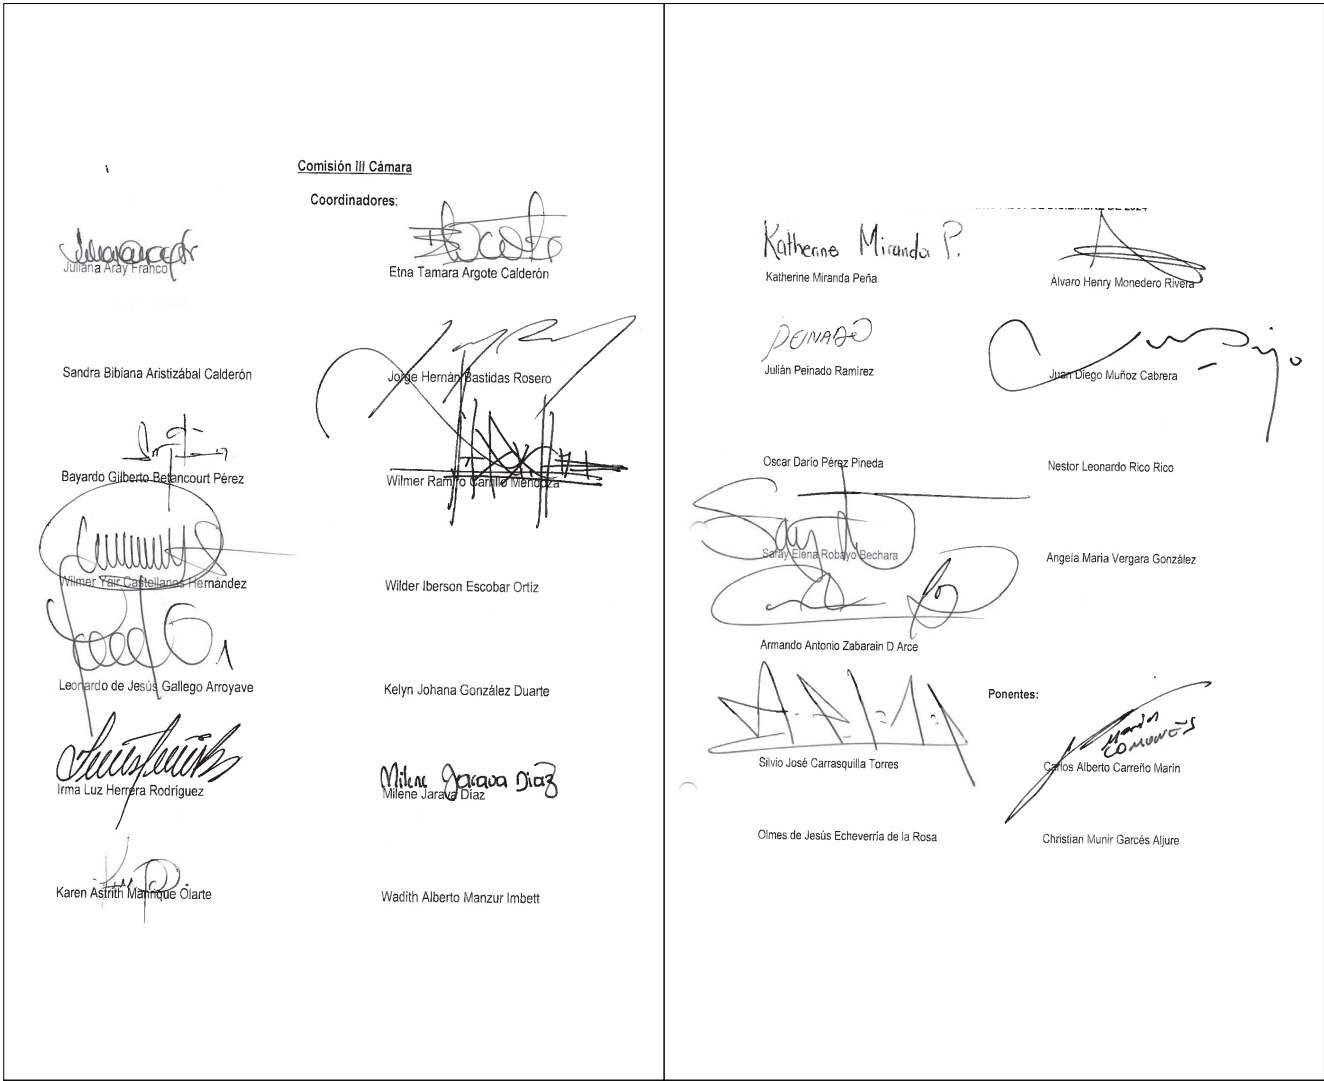 Comisión III Cámara
Coordinadores:
Juliana Aray Franco
Etna Tamara Argote Calderón
Sandra Bibiana Aristizábal Calderón
Jorge Hernán Bastidas Rosero
Bayardo Gilberto Betancourt Pérez
Wilmer Ramiro Carrillo Mendoza
Wilmer Yair Castellanos Hernández
Wilder Iberson Escobar Ortíz
Leonardo de Jesús Gallego Arroyave
Kelyn Johana González Duarte
Irma Luz Herrera Rodríguez
Milene Jarava Diaz
Milene Jarava Díaz
Karen Astrith Manrique Olarte
Wadith Alberto Manzur Imbett
DE DICIEMBRE DE 2024
Katherine Miranda P.
Katherine Miranda Peña
Álvaro Henry Monedero Rivera
PEINADO
Julián Peinado Ramírez
Juan Diego Muñoz Cabrera
Oscar Darío Pérez Pineda
Nestor Leonardo Rico Rico
Saray Elena Robayo Bechara
Angela Maria Vergara González
Armando Antonio Zabarain D Arce
Ponentes:
Silvio José Carrasquilla Torres
COMUNES
Carlos Alberto Carreño Marín
Olmes de Jesús Echeverría de la Rosa
Christian Munir Garcés Aljure